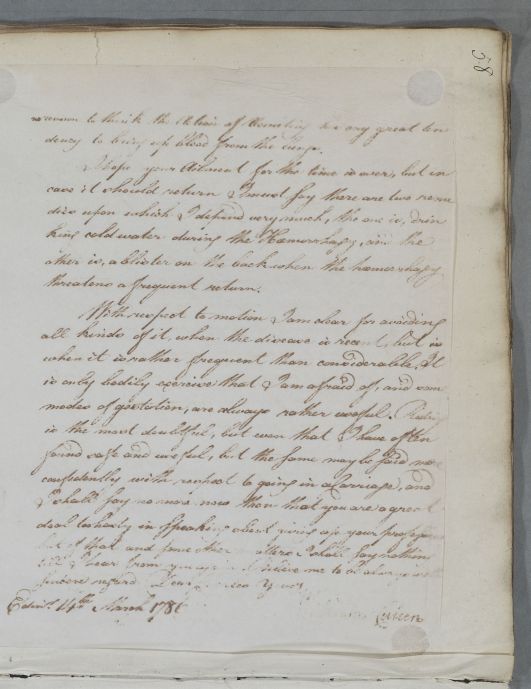 reason to think the Action of Vomiting has any great ten
dency to bring up blood from the lungs.
I hope your Ailment for the time is over, but in
case it should return I must say there are two reme
dies upon which I depend very much, the one is, drin
king cold water during the Hemorrhagy, and the
other is, a blister on the back when the hemorrhagy
threatens a frequent return.
With respect to motion I am clear for avoiding
all kinds of it, when the disease is recent, but is
when it is rather frequent than considerable. It
is only bodily exercise that I am afraid of, and som
modes of gestation, are always rather useful. Riding
is the most doubtful, but even that I have often
found safe and useful, but the same may be said
confidently with respect to going in a Carriage, and
I shall say no more now than that you are a great
deal too hasty in speaking about giving up your profess
but of that and some other matters I shall say nothin
till I hear from you again believe me to be always with
sincere regard
Edinr. 14th March 178
Cullen